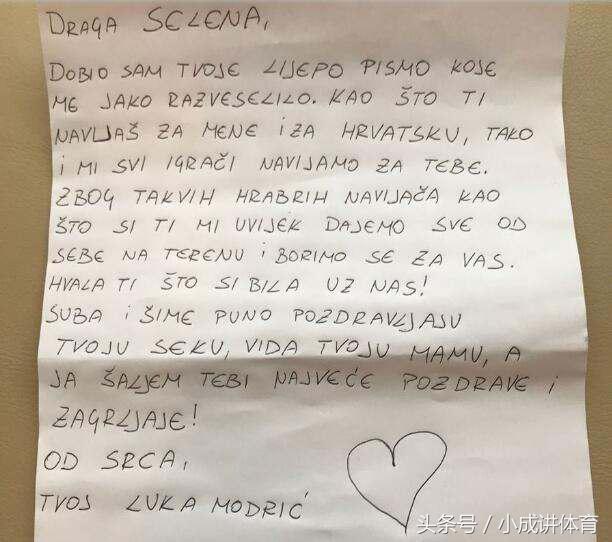 DRAGA SELENA,
DOBIO SAM TVOJE LIJEPO PISMO KOJE
ME JAKO RAZVESELILO. KAO ŠTO TI
NAVIJAŠ ZA MENE i ZA HRVATSKU, TAKO
i MI SVI IGRAČI NAVIJAMO ZA TEBE.
ZBOG TAKVIH HRABRIH NAVIJAČA KAO
ŠTO SI TI MI UVIJEK DAJEMO SVE OD
SEBE NA TERENU i BORIMO SE ZA VAS.
HVALA TI ŠTO SI BILA UZ NAS!
SUBA i ŠIME PUNO POZDRAVLJAJU
TVOJU SEKU, VIDA TVOJU MAMU, A
JA ŠALJEM TEBI NAJVEĆE POZDRAVE i
ZAGRLJAJE!
OD SRCA,
TVOJ LUKA MODRIĆ
头条号 / 小成讲体育